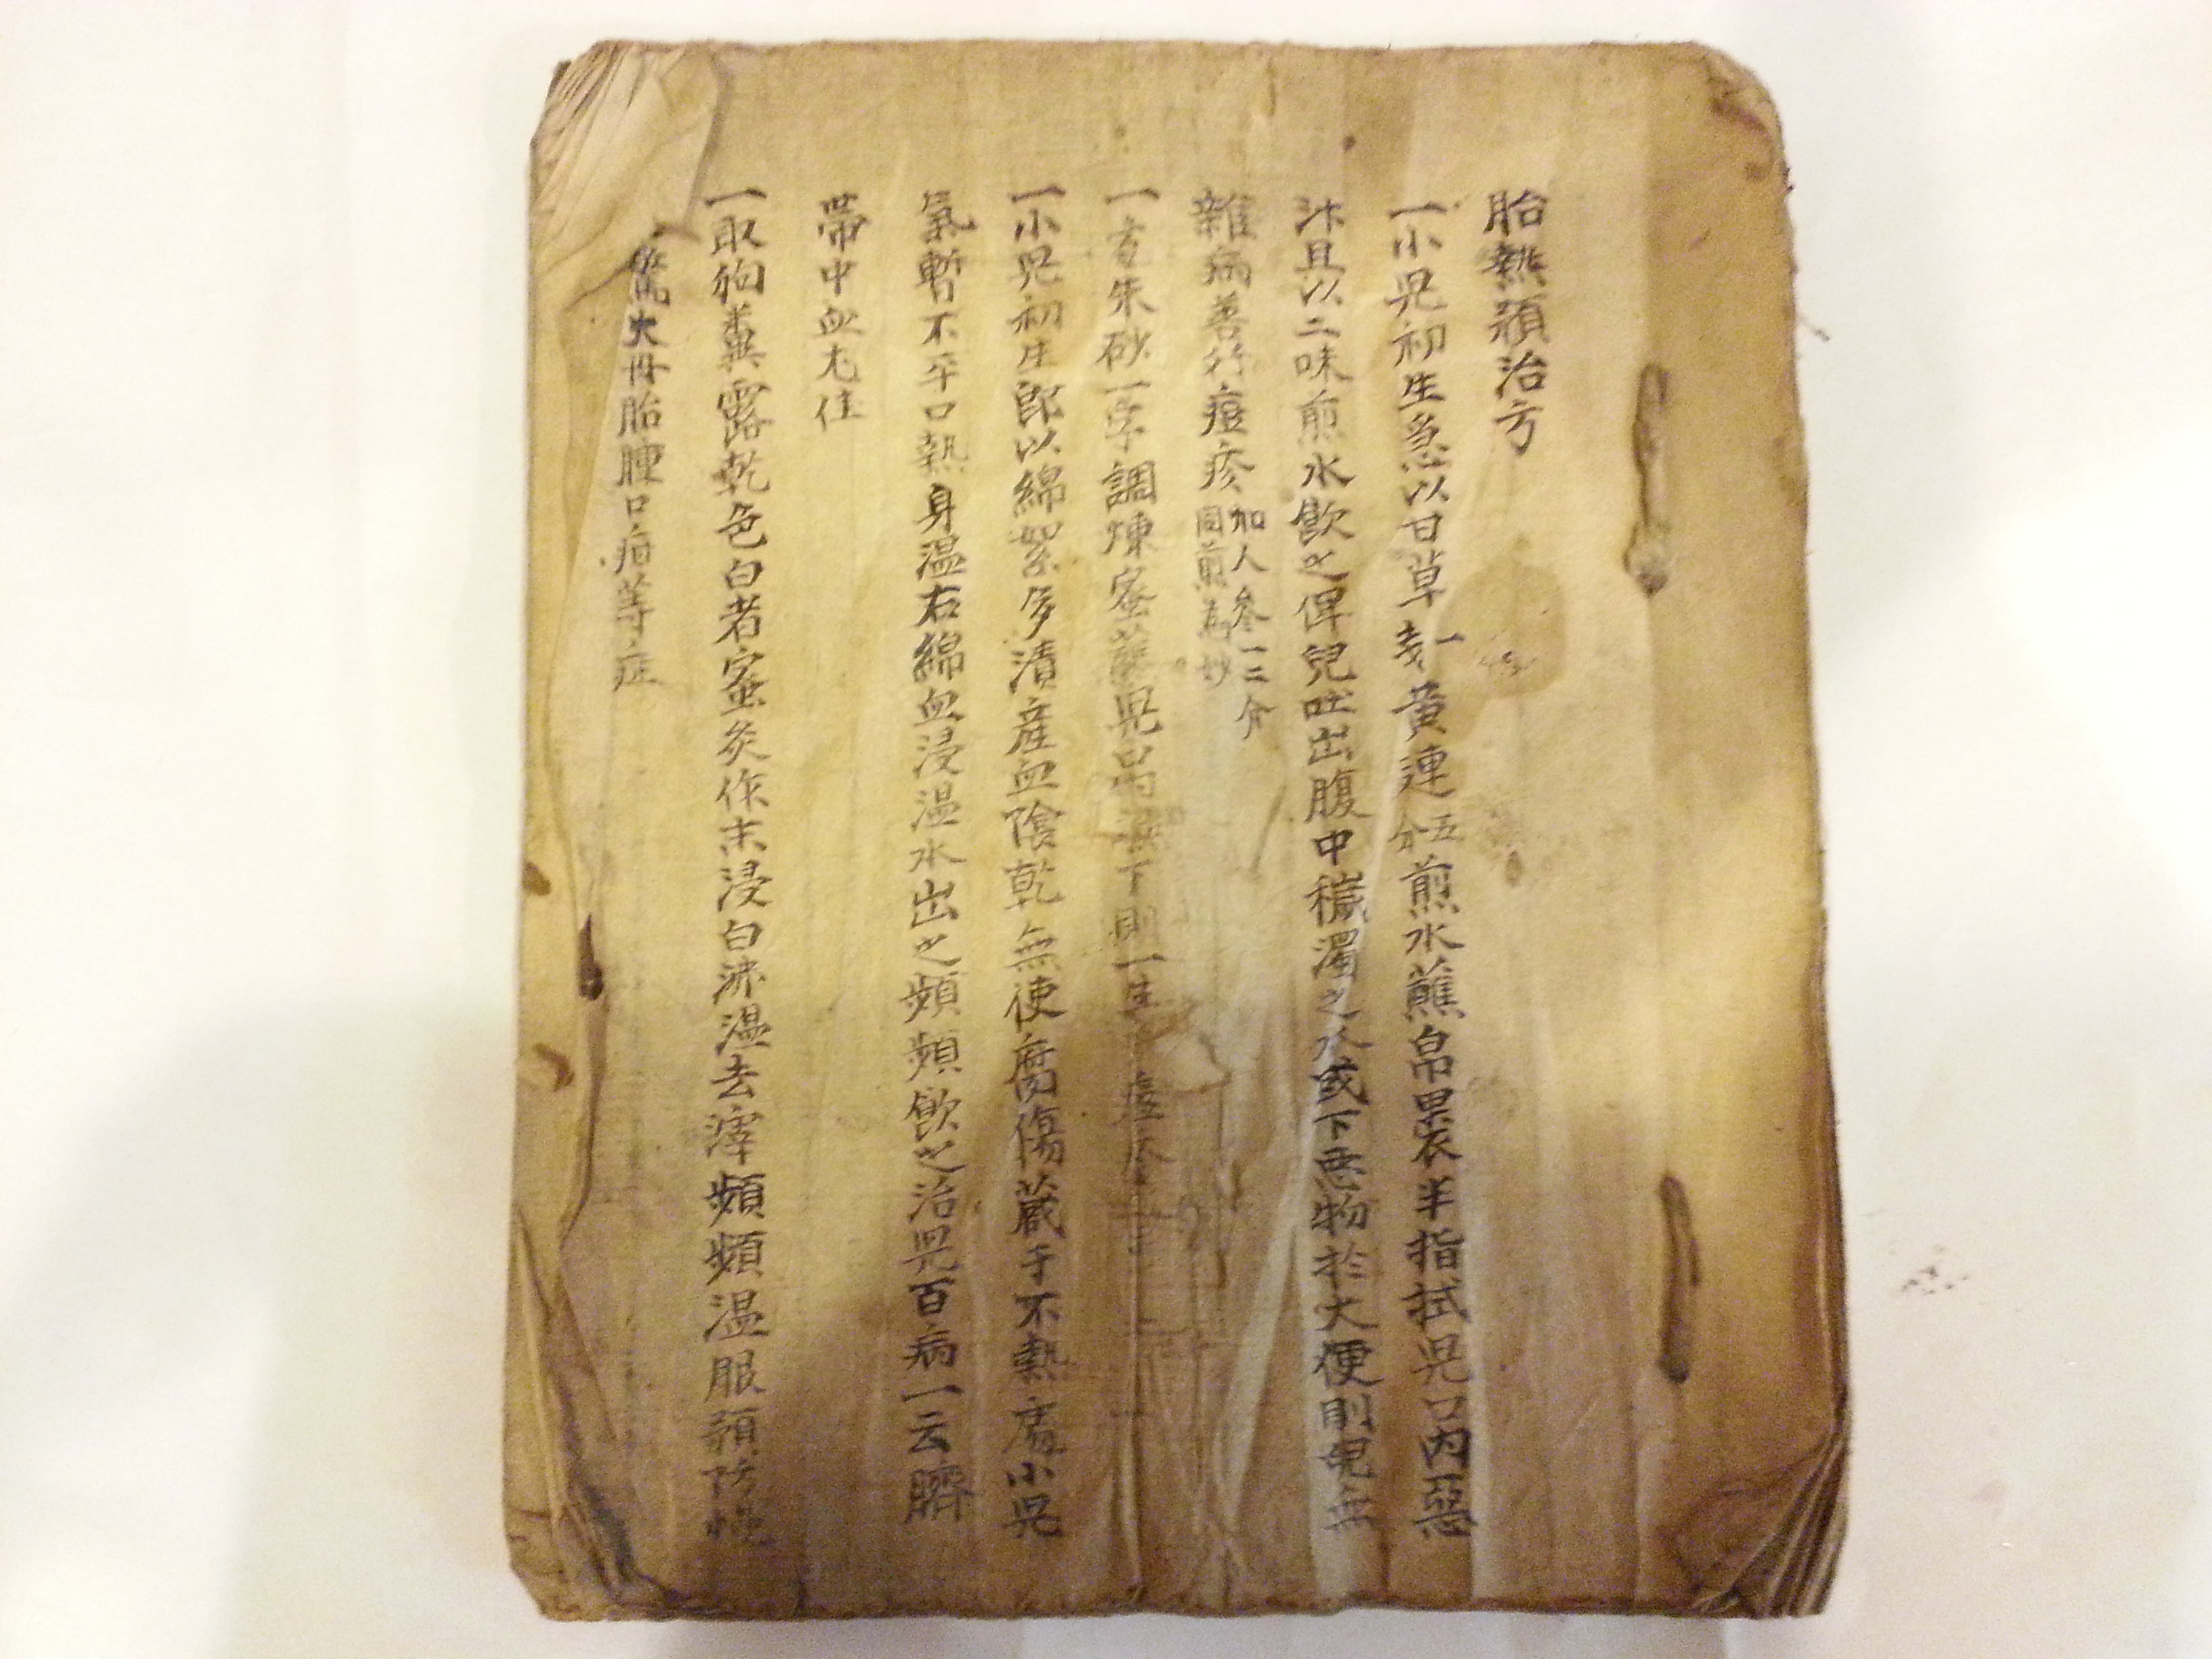 胎熱預治方
一小児初生急以甘草一戔黄連五分煎水蘸帛裹手指拭児口內惡
沐且以二味煎水飲之俾兒吐出腹中穢濁之水或下惡物於大便則免無
雜病善行痘疹加人參一二分同煎為妙
一方朱砂一字調煉蜜 児 下則一生 痘疹
一小児初生即以綿絮多漬産血陰乾無使腐傷藏于不熱處小児
氣暫不平口熱身温右綿血浸温水出之頻頻飲之治児百病一云臍
帶中血尤佳
一取狗糞露乾色白者蜜炙作末浸白沸温去滓頻頻温服預防
大丹胎腫口疳等症